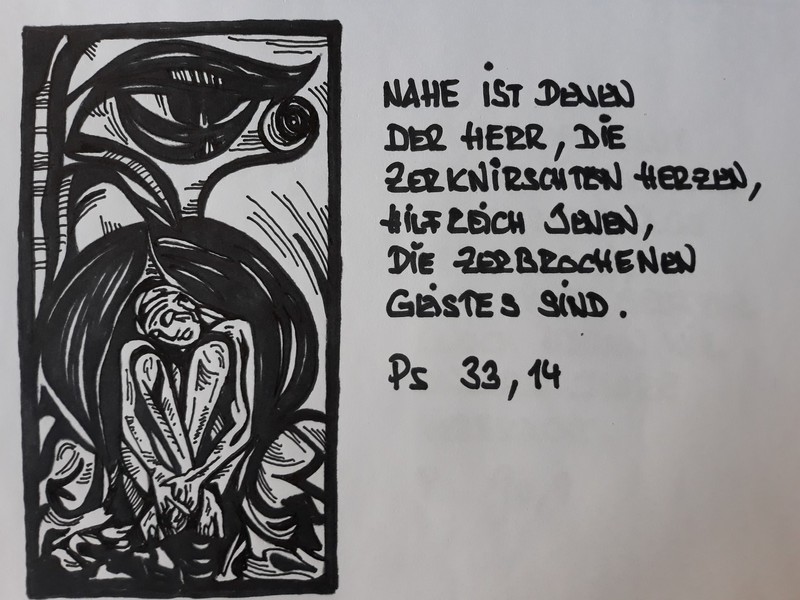 NAHE IST DENEN
DER HERR, DIE
ZERKNIRSCHTEN HERZEN,
HILFREICH JENEN,
DIE ZERBROCHENEN
GEISTES SIND.
Ps 33,14